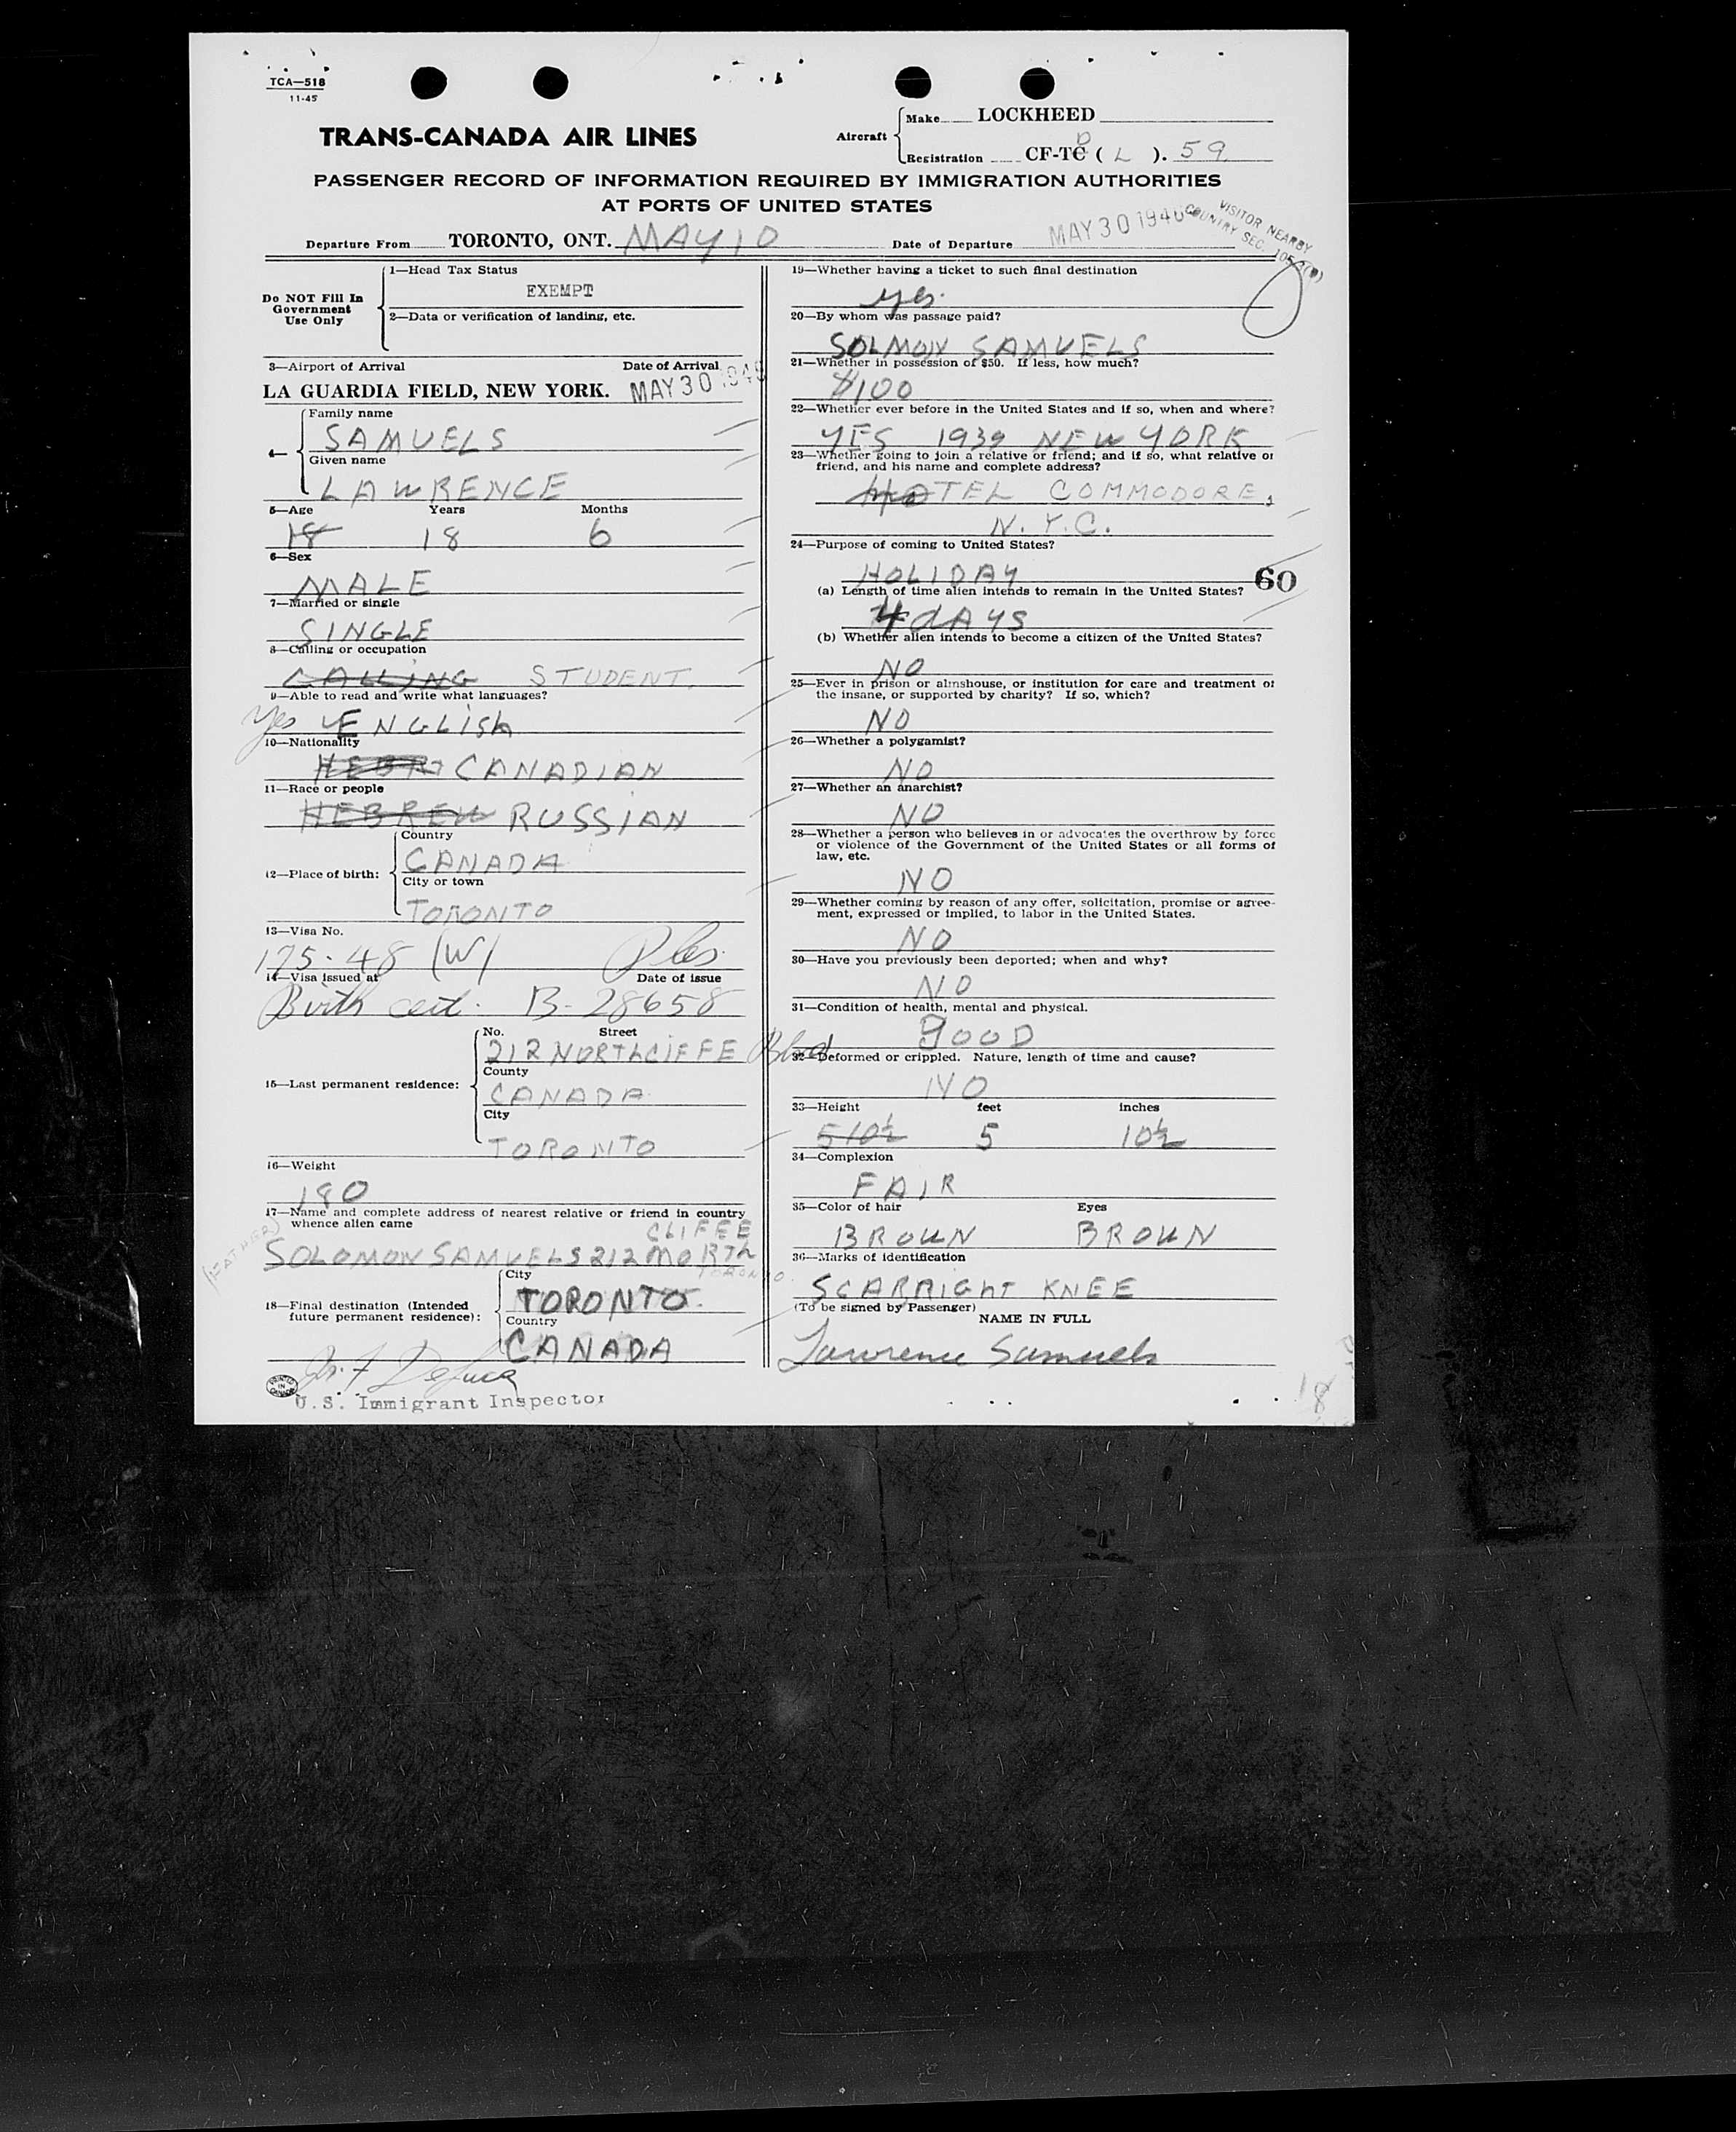 TCA—518
11-45
TRANS-CANADA AIR LINES
Aircraft
Make LOCKHEED
Registration CF-TC D ( L ). 59
PASSENGER RECORD OF INFORMATION REQUIRED BY IMMIGRATION AUTHORITIES
AT PORTS OF UNITED STATES
VISITOR NEARBY
COUNTRY SEC.
Departure From TORONTO, ONT. MAY 10 Date of Departure MAY 30 1946
Do NOT Fill In
Government
Use Only
1—Head Tax Status
EXEMPT
2—Data or verification of landing, etc.
3—Airport of Arrival Date of Arrival
LA GUARDIA FIELD, NEW YORK. MAY 30 1946
4—
Family name
SAMUELS
Given name
LAWRENCE
5—Age Years Months
18 18 6
6—Sex
MALE
7—Married or single
SINGLE
8—Calling or occupation
CALLING STUDENT.
9—Able to read and write what languages?
Yes ENGLISh
10—Nationality
HEBR CANADIAN
11—Race or people
HEBREW RUSSIAN
12—Place of birth:
Country
CANADA
City or town
TORONTO
13—Visa No.
175-48 (W)
14—Visa issued at Date of issue
Birth cert. B-28658
15—Last permanent residence:
No. Street
212 NORTLCIFFE Blvd
County
CANADA
City
TORONTO
16—Weight
180
17—Name and complete address of nearest relative or friend in country
whence alien came
CLIFEE
(FATHER)
SOLOMON SAMUELS 212 NORTh
TORONTO
18—Final destination (Intended
future permanent residence):
City
TORONTO.
Country
CANADA
U.S. Immigrant Inspector
PRINTED
IN
CANADA
19—Whether having a ticket to such final destination
yes.
20—By whom was passage paid?
SOLMON SAMUELS
21—Whether in possession of $50. If less, how much?
$100
22—Whether ever before in the United States and if so, when and where?
YES 1939 NEW YORK
23—Whether going to join a relative or friend; and if so, what relative or
friend, and his name and complete address?
HOTEL COMMODORE,
N.Y.C.
24—Purpose of coming to United States?
HOLIDAY
60
(a) Length of time alien intends to remain in the United States?
4 dAYS
(b) Whether alien intends to become a citizen of the United States?
NO
25—Ever in prison or almshouse, or institution for care and treatment of
the insane, or supported by charity? If so, which?
NO
26—Whether a polygamist?
NO
27—Whether an anarchist?
NO
28—Whether a person who believes in or advocates the overthrow by force
or violence of the Government of the United States or all forms of
law, etc.
NO
29—Whether coming by reason of any offer, solicitation, promise or agree-
ment, expressed or implied, to labor in the United States.
NO
30—Have you previously been deported; when and why?
NO
31—Condition of health, mental and physical.
gOOD
32—Deformed or crippled. Nature, length of time and cause?
NO
33—Height feet inches
5 10½ 5 10½
34—Complexion
FAIR
35—Color of hair Eyes
BROUN BROUN
36—Marks of identification
SCAR RIGhT KNEE
(To be signed by Passenger)
NAME IN FULL
Lawrence Samuels
18